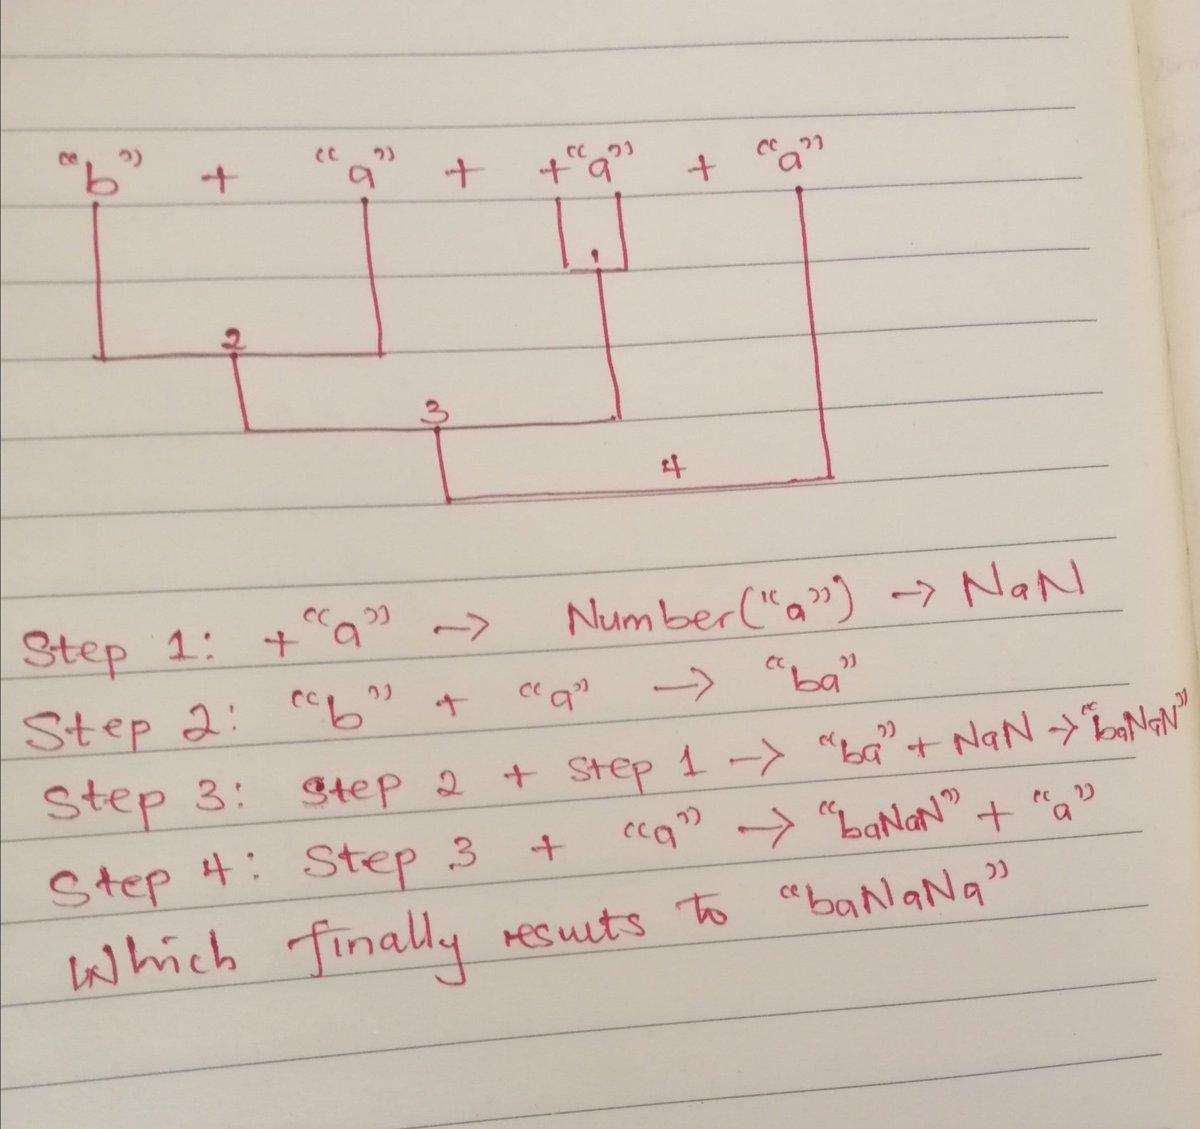 “b” + “a” + +“a” + “a”
1
2
3
4
Step 1: +“a” → Number(“a”) → NaN
Step 2: “b” + “a” → “ba”
Step 3: Step 2 + Step 1 → “ba” + NaN → “baNaN”
Step 4: Step 3 + “a” → “baNaN” + “a”
Which finally results to “baNaNa”